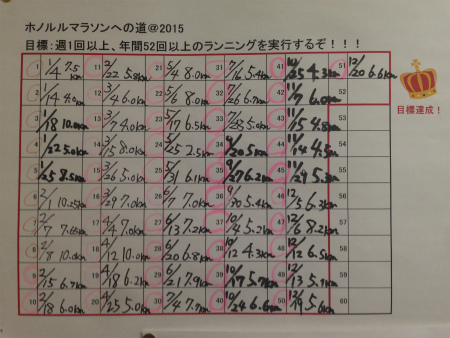 ホノルルマラソンへの道@2015
目標:週1回以上、年間52回以上のランニングを実行するぞ!!!
1 1/4 7.5km 11 2/22 5.8km 21 5/4 8.0km 31 7/16 5.4km 41 10/25 4.3km 51 12/20 6.6km
2 1/14 4.0km 12 3/4 6.0km 22 5/6 8.0km 32 7/26 6.7km 42 11/7 6.0km 52
3 1/18 10.0km 13 3/7 4.0km 23 5/17 6.5km 33 5.0km 43 11/15 4.8km 53
4 1/22 5.0km 14 3/15 8.0km 24 2.5km 34 9/20 5km 44 11/ 4.5km 54
5 1/25 8.5km 15 3/ 6.0km 25 5/31 6.1km 35 9/27 6.2km 45 11/29 5.3km 55
6 2/1 10.25km 16 3/29 7.0km 26 6/7 7.0km 36 9/30 5.4km 46 12/5 6.3km 56
7 2/7 7.6km 17 4/4 7.0km 27 6/13 7.2km 37 10/4 5.2km 47 12/6 8.2km 57
8 2/8 10.0km 18 4/12 10.0km 28 6/20 6.8km 38 10/12 4.3km 48 12/12 6.5km 58
9 2/15 6.7km 19 4/18 6.2km 29 6/21 7.9km 39 10/17 5.7km 49 12/13 5.7km 59
10 2/18 6.0km 20 4/25 5.0km 30 7/4 7.7km 40 10/24 6.6km 50 12/19 5.6km 60
目標達成!